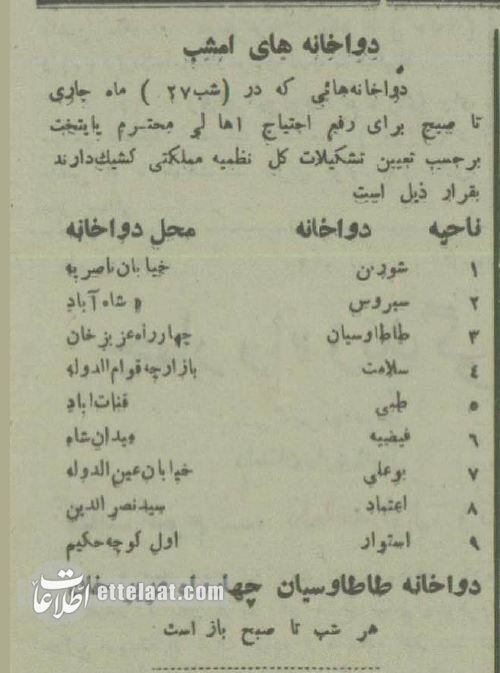 دواخانه های امشب
دواخانه‌هائی که در (شب ۲۷ ) ماه جاری
تا صبح برای رفع احتیاج اهالی محترم پایتخت
برحسب تعیین تشکیلات کل نظمیه مملکتی کشیک دارند
بقرار ذیل است
ناحیه دواخانه محل دواخانه
۱ شورین خیابان ناصریه
۲ سیروس » شاه آباد
۳ طاطاوسیان چهارراه عزیز خان
٤ سلامت بازارچه قوام الدوله
۵ طبی قنات اباد
۶ فیضیه میدان شاه
۷ بوعلی خیابان عین الدوله
۸ اعتماد سید نصرالدین
۹ استوار اول کوچه حکیم
دواخانه طاطاوسیان
هر شب تا صبح باز است
اطلاعات ettelaat.com